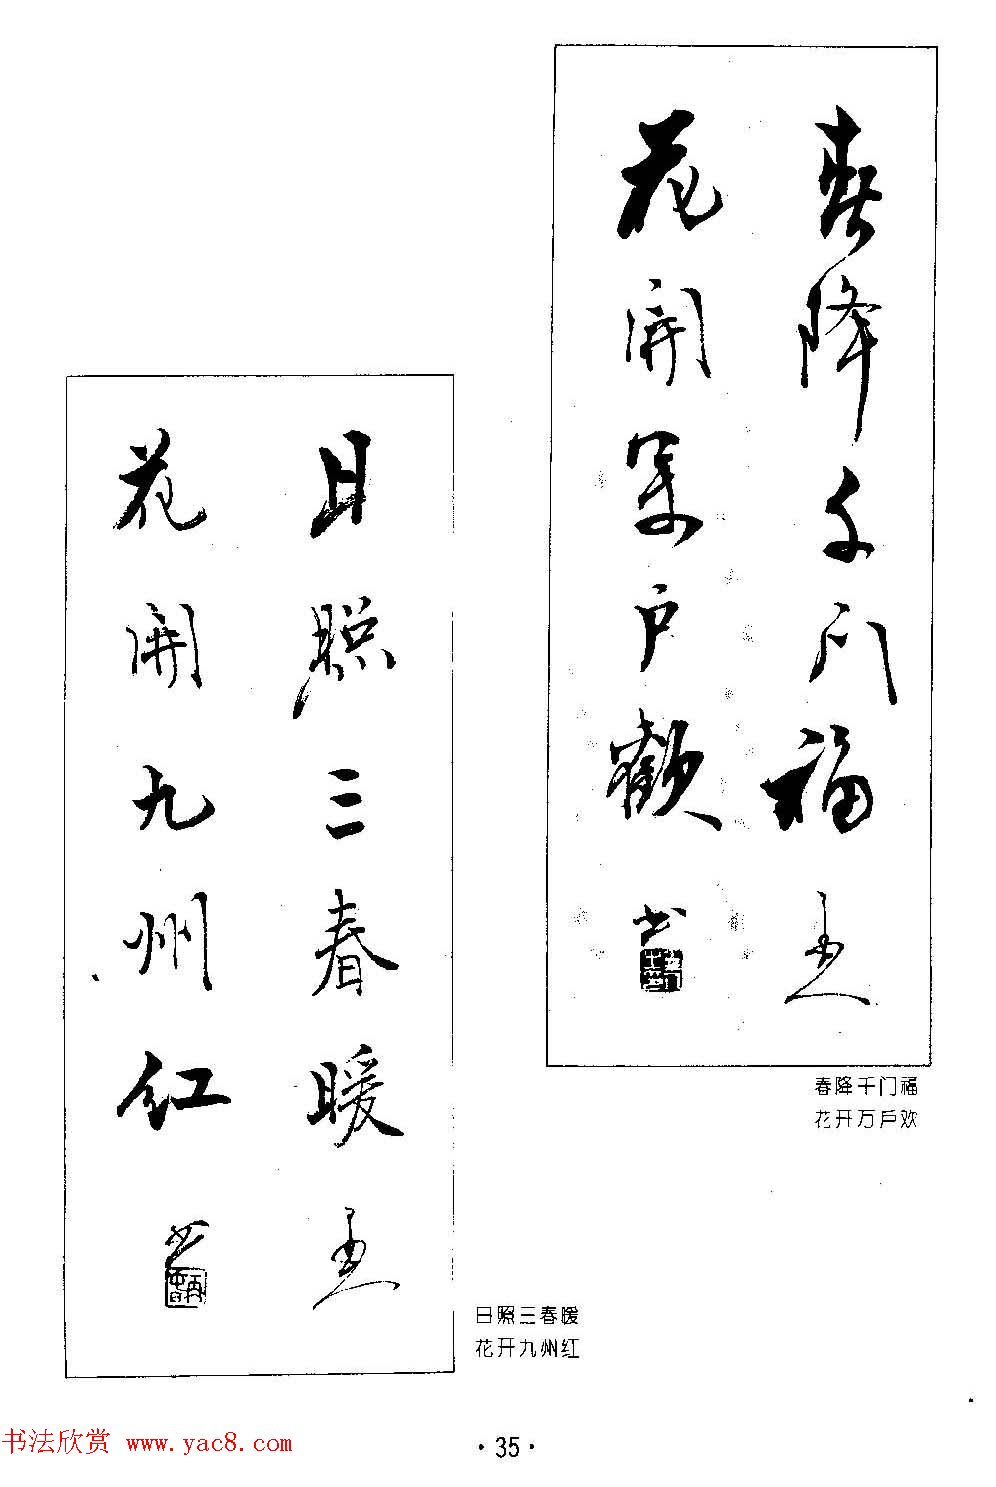 春降千门福
花開万户歡
书
春降千门福
花开万户欢
日照三春暖
花開九州红
书
日照三春暖
花开九州红
书法欣赏 www.yac8.com
·35·